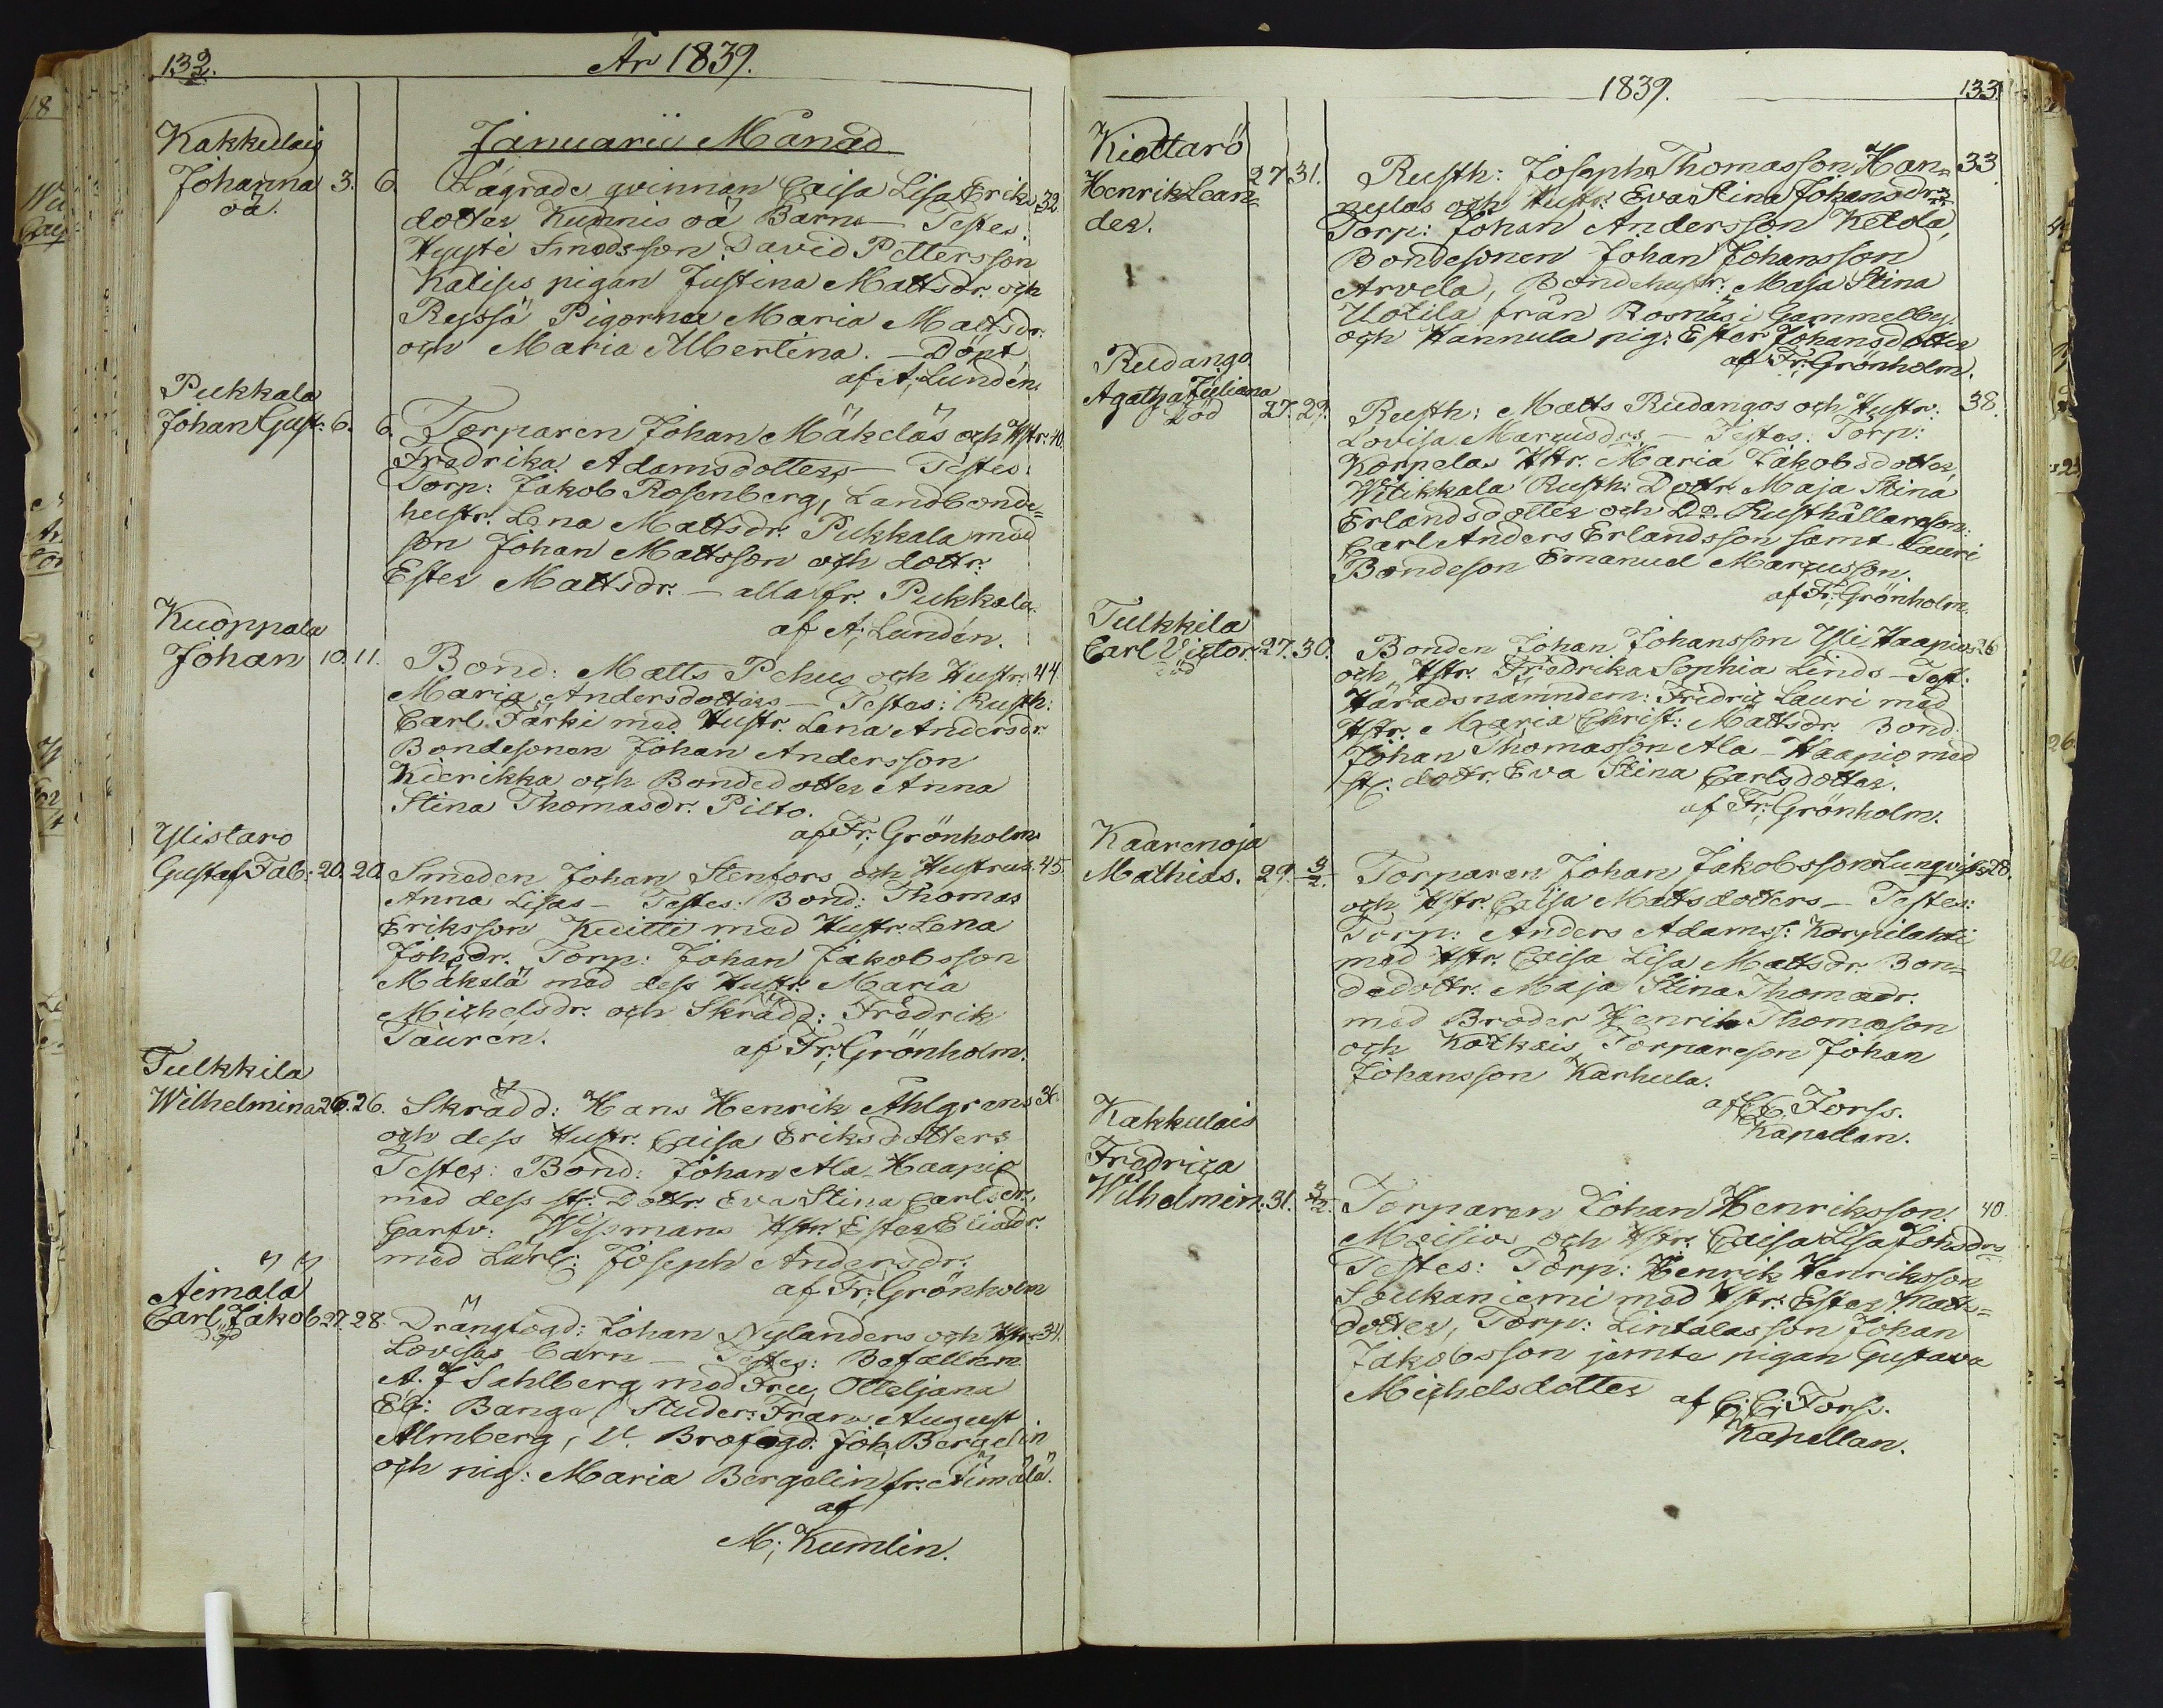 132.
År 1839.
Januarii Månad
Kakkulais
Johanna 3. 6. Lägrade qvinnan Caisa Lisa Eriks 32.
oä. dotter Kunnis oä Barn — Testes:
Hyysti Smedsson David Pettersson
Kalises pigan Justina Mattsdr. och
Reyssä Pigorna Maria Mattsdr.
och Maria Albertina. — Döpt
af A. Lundén.
Pukkala
Johan Gust: 6. 6. Torparen Johan Mäkeläs och Hstr: 40.
Fredrika Adamsdotters — Testes:
Torp: Jakob Rosenberg, Landbonde-
hustr. Lena Mattsdr. Pukkala med
son Johan Mattsson och dottr.
Ester Mattsdr. — alla fr. Pukkala.
af A. Lundén.
Kuoppala
Johan 10. 11. Bond: Matts Pehus och Hustr: 44.
Maria Andersdotters — Testes: Rusth:
Carl Färki med Hustr. Lena Andersdr.
Bondesonen Johan Andersson
Kierikka och Bondedotter Anna
Stina Thomasdr. Pilto.
af Fr. Grönholm
Ylistaro
Gustaf Fab: 20. 20. Smeden Johan Stenfors och Hustrus 45.
Anna Lisas — Testes: Bond: Thomas
Eriksson Kuitti med Hustr. Lena
Johsdr. Torp: Johan Jakobsson
Mäkelä med dess Hustr. Maria
Michelsdr. och Skrädd: Fredrik
Taurén.
af Fr. Grönholm.
Tulkkila
Wilhelmina 26. 26. Skrädd: Hans Henrik Ahlgrens
och dess Hustr. Caisa Eriksdotters
Testes: Bond: Johan Ala Haapio
med dess st. Dottr. Eva Stina Carlsdr.
Garfv: Wessmans Hstr. Ester Eliædr.
med Lärl: Joseph Andersdr.
af Fr. Grönholm
Äimälä
Carl Jakob 27. 28. Drängfogd: Johan Nylanders och Hstr: 34.
död
Lovisas barn — Testes: Befallnn
A. J Sahlberg med Fru, Otteljana
El: Bange, Studer: Frans August
Almberg, V. Brofogd: Joh. Bergelin
och pig: Maria Bergelin fr. Äimälä.
af
M. Kumlin.
1839.
133.
Kiettarö
Henrik Lean- 27 31. Rusth: Joseph Thomasson Han- 33
der. nulas och Hustr: Eva Stina Johansdrs
Torp: Johan Andersson Ketola,
Bondesonen Johan Johansson
Arvela, Bondehustr: Maja Stina
Uotila från Rosnäs i Gammelby
och Hannula pig: Ester Johansdotter
af Fr. Grönholm.
Rudango
Agatha Juliana
Död 27. 29. Rusth: Matts Rudangos och Hustr: 38.
Lovisa Marcusdrs — Testes: Torp:
Korpelas Hstr. Maria Jakobsdotter,
Witikkala Rusth: Dottr. Maja Stina
Erlandsdotter och Do. Rusthållareson:
Carl Anders Erlandsson samt Lauri
Bondeson Emanuel Marcusson.
af Fr. Grönholm.
Tulkkila
Carl Victor 27. 30. Bonden Johan Johansson Yli Haapios 26
död
och Hstr. Fredrika Sophia Linds — Test:
Häradsnämndem: Fredric Lauri med
Hstr. Maria Christ: Mattsdr. Bond:
Johan Thomasson Ala-Haapio med
st. dottr. Eva Stina Carlsdotter.
af Fr. Grönholm.
Kaarenoja
Mathias. 29. 3/2. Torparen Johan Jakobsson Lunqvists 28.
och Hstr. Caisa Mattsdotters — Testes:
Torp: Anders Adamss: Korpilahti
med Hstr. Caisa Lisa Mattsdr. Bon-
dedottr. Maja Stina Thomædr.
med Broder Henrik Thomæson
och Torpareson Johan
Johansson Karhula.
af C. C. Forss.
Kapellan.
Kakkulais
Fredrica
Wilhelmin: 31. 3/2. Torparen Johan Henriksson 40.
Maisio och Hstr. Caisa Lisa Johsdrs
Testes: Torp: Henrik Henriksson
Soukaniemi med Hstr. Ester Matts-
dotter, Torp: Lintalasson Johan
Jakobsson jemte pigan Gustava
Michelsdotter
af C. C. Forss.
Kapellan.